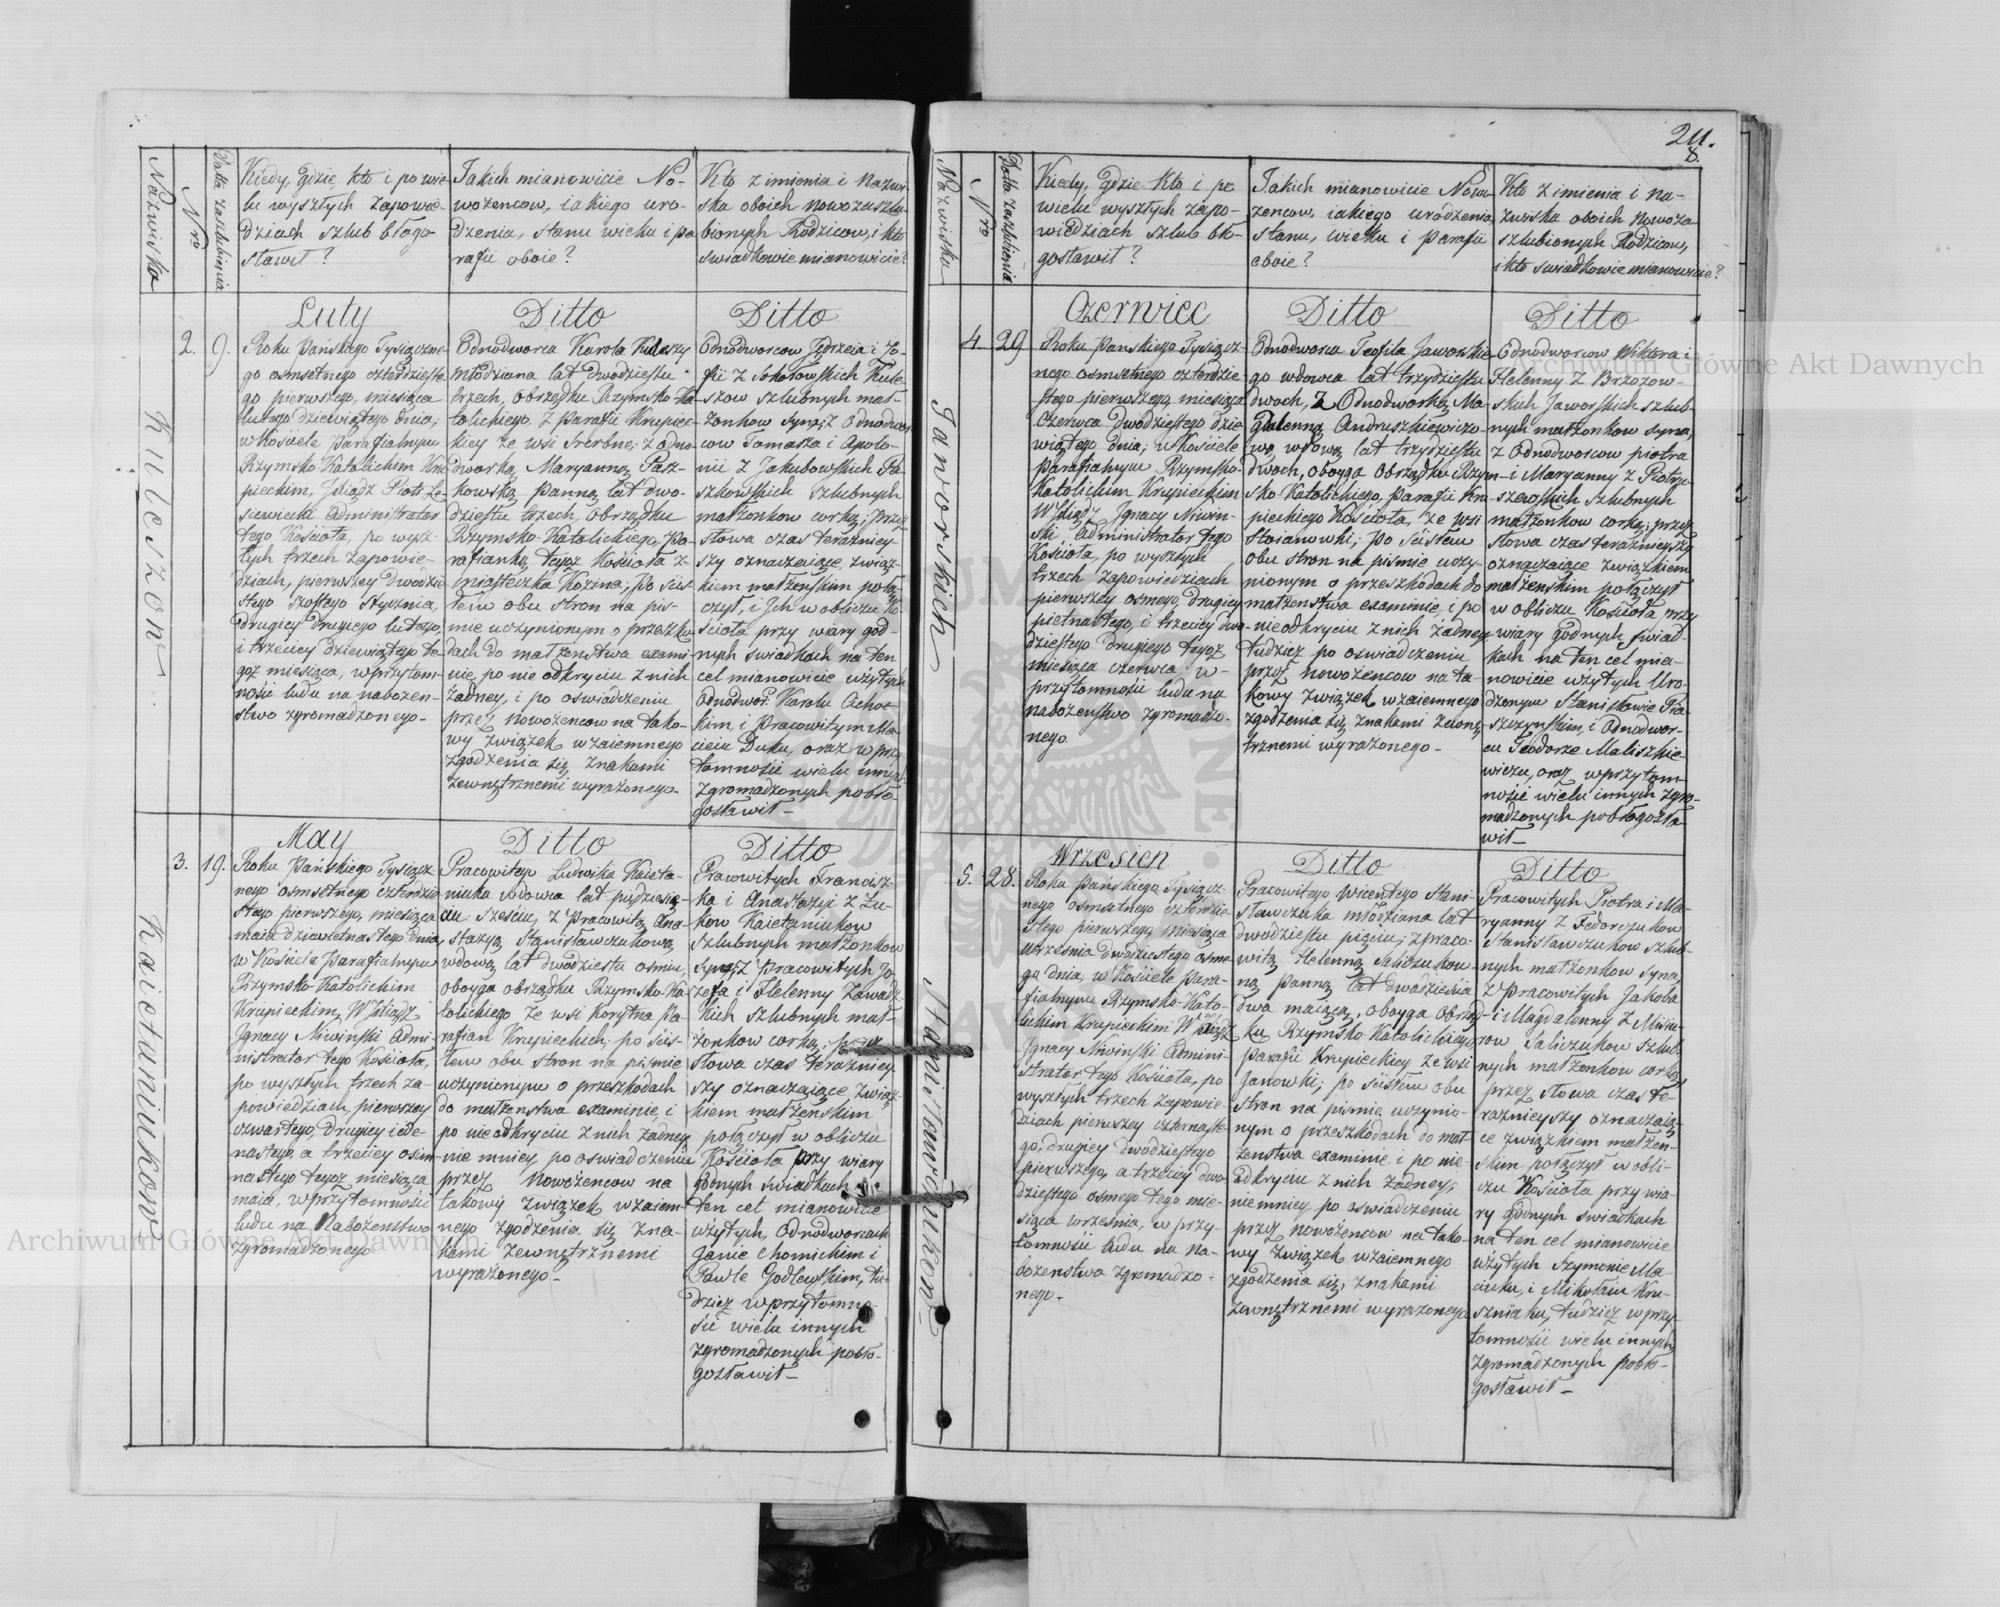 211.
8.
Nazwiska
Nro
Datta zaszlubienia
Kiedy, gdzie kto i po wie-
lu wyszłych zapowie-
dziach szlub błogo-
sławił?
Jakich mianowicie No-
wożencow, iakiego uro-
dzenia, stanu wieku i pa
rafii oboie?
Kto z imienia i Nazwi-
ska oboich nowozaszlu-
bionych Rodzicow, i kto
swiadkowie mianowicie?
Kuleszow
2.
9.
Luty
Roku Pańskiego Tysiączne-
go osmsetnego czterdzieste
go pierwszego, miesiąca
lutego dziewiątego dnia,
w Kościele Parafialnym
Rzymsko-Katolickim Kru
pieckim, Xsiądz Piotr Le-
siewiecki Administrator
tego Kościoła, po wysz-
łych trzech zapowie-
dziach, pierwszey dwódzie
stego szóstego stycznia,
drugiey drugiego lutego,
i trzeciey dziewiątego te-
goż miesiąca, w przytom-
ności ludu na nabożen-
stwo zgromadzonego-
Ditto
Odnodworca Karola Kuleszy
młodziana lat dwodziestu
trzech, obrządku Rzymsko-Ka
tolickiego, z parafii Krupiec-
kiey ze wsi Srebrne; z Odno
dworką Maryanną Pasz-
kowską panną lat dwo-
dziestu trzech, obrządku
Rzymsko-Katolickiego, Pa-
rafianką tegoż Kościoła z
miasteczka Kozina; po ścis-
łem obu stron na piś-
mie uczynionym o przeszko
dach do małżenstwa exami
nie, po nie odkryciu z nich
żadney, i po oswiadczeniu
przez Nowożencow na tako-
wy związek wzaiemnego
zgodzenia się, znakami
zewnętrznemi wyrażonego-
Ditto
Odnodworcow Jędrzeia i Zo-
fii z Sokołowskich Kule-
szow szlubnych mał-
żonkow syna; z Odnodwor
cow Tomasza i Apolo-
nii z Jakubowskich Pa-
szkowskich szlubnych
małżonkow corką; przez
słowa czas teraźniey
szy oznaczaiące związ-
kiem małżenskim połą
czył, i Ich w obliczu Ko-
ścioła przy wiary god-
nych swiadkach na ten
cel mianowicie użytych
Odnodwor: Karolu Cichoc-
kim, i Pracowitym Ma-
cieiu Duku, oraz w przy
tomności wielu innych
zgromadzonych pobło-
gosławił-
Kaietaniukow
3.
19.
May
Roku Pańskiego Tysiącz
nego osmsetnego czterdzie
stego pierwszego, miesiąca
maia dziewietnastego dnia,
w Kościele Parafialnym
Rzymsko-Katolickim
Krupieckim, W Xsiądz
Ignacy Niwiński Admi
nistrator tego Kościoła,
po wyszłych trzech za-
powiedziach, pierwszey
czwartego, drugiey iede-
nastego, a trzeciey osim
nastego tegoż miesiąca
maia, w przytomności
ludu na Nabożenstwo
zgromadzonego
Ditto
Pracowitego Ludwika Kaieta-
niuka wdowca lat pięćdziesię-
ciu sześciu, z Pracowitą Ana
stazyą Stanisławczukową
wdową lat dwódziestu osmiu,
oboyga obrządku Rzymsko-Ka
tolickiego ze wsi Korytna Pa
rafian Krupieckich; po ścis-
łem obu stron na piśmie
uczynionym o przeszkodach
do małżenstwa examinie, i
po nieodkryciu z nich żadney
nie mniey po oswiadczeniu
przez Nowożencow na
takowy związek wzaiem-
nego zgodzenia się zna-
kami zewnętrznemi
wyrażonego-
Ditto
Pracowitych Francisz-
ka i Anastazyi z Łu-
kow Kaietaniukow
szlubnych małżonkow
syna; z Pracowitych Jo
zefa i Helenny Zawadz
kich szlubnych mał-
żonkow corką; przez
słowa czas teraźniey
szy oznaczaiące związ-
kiem małżenskim
połączył w obliczu
Kościoła przy wiary
godnych swiadkach na
ten cel mianowicie
użytych, Odnodworcach
Janie Chomickim i
Pawle Godlewskim, tu-
dzież w przytomno
ści wielu innych
zgromadzonych pobło-
gosławił-
Nazwiska
Nro
Datta zaszlubienia
Kiedy, gdzie kto i po
wielu wyszłych zapo-
wiedziach szlub bło-
gosławił?
Jakich mianowicie Nowo
żencow, iakiego urodzenia
stanu, wieku i parafii
oboie?
Kto z imienia i Na-
zwiska oboich nowoza
szlubionych Rodzicow,
i kto swiadkowie mianowicie?
Jaworskich
4.
29
Czerwiec
Roku Pańskiego Tysiącz-
nego osmsetnego czterdzie-
stego pierwszego miesiąca
Czerwca dwódziestego dzie
wiątego dnia, w Kościele
Parafialnym Rzymsko-
Katolickim Krupieckim
W Xsiądz Ignacy Niwin-
ski Administrator tego
Kościoła, po wyszłych
trzech zapowiedziach
pierwszey osmego, drugiey
pietnastego, i trzeciey dwo-
dziestego drugiego tegoż
miesiąca czerwca w
przytomności ludu na
nabożenstwo zgromadzo-
nego
Ditto
Odnodworca Teofila Jaworskie
go wdowca lat trzydziestu
dwoch, z Odnodworką Ma-
gdalenną Andruszkiewiczo
wą, wdową lat trzydziestu
dwoch, oboyga obrządku Rzym-
sko-Katolickiego, parafii Kru
pieckiego Kościoła, ze wsi
Stoianowki; po ścisłem
obu stron na piśmie uczy-
nionym o przeszkodach do
małżenstwa examinie, i po
nieodkryciu z nich żadney
tudzież po oswiadczeniu
przez nowożencow na ta-
kowy związek wzaiemnego
zgodzenia się znakami zewnę
trznemi wyrażonego-
Ditto
Odnodworcow Wiktora i
Helenny z Brzozow-
skich Jaworskich szlub-
nych małżonkow syna,
z Odnodworcow Piotra
i Maryanny z Piotru-
szewskich szlubnych
małżonkow corką; przez
słowa czas teraźnieyszy
oznaczaiące związkiem
małżenskim połączył
w obliczu Kościoła, przy
wiary godnych swiad-
kach na ten cel mia-
nowicie użytych Uro-
dzonym Stanisławie Pia-
szczyńskim, i Odnodwor-
cu Teodorze Maliszkie-
wiczu, oraz w przytom-
ności wielu innych zgro-
madzonych pobłogosła
wił-
Stanisławczukow
5.
28.
Wrzesien
Roku Pańskiego Tysiącz-
nego osmsetnego czterdzie
stego pierwszego, miesiąca
września dwódziestego osme
go dnia, w Kościele Para-
fialnym Rzymsko-Kato-
lickim Krupieckim W Xiądz
Ignacy Niwinski Admini-
strator tego Kościoła, po
wyszłych trzech zapowie-
dziach pierwszey czternaste
go, drugiey dwodziestego
pierwszego, a trzeciey dwo
dziestego osmego tego mie-
siąca września, w przy-
tomności ludu na na-
bożenstwo zgromadzo-
nego.-
Ditto
Pracowitego Wicentego Stani-
sławczuka młodziana lat
dwodziestu pięciu; z praco-
witą Helenną Saliczukow-
ną panną lat dwadzieścia
dwa maiącą, oboyga obrząd-
ku Rzymsko-Katolickiego,
parafii Krupieckiey ze wsi
Janowki; po ścisłem obu
stron na piśmie uczynio-
nym o przeszkodach do mał-
żenstwa examinie i po nie-
odkryciu z nich żadney,
nie mniey po oswiadczeniu
przez nowożencow na tako-
wy związek wzaiemnego
zgodzenia się, znakami
zewnętrznemi wyrażonego
Ditto
Pracowitych Piotra i Ma-
ryanny z Fedorczukow
Stanisławczukow szlub-
nych małżonkow syna,
z Pracowitych Jakoba
i Magdalenny z Misiu-
row Saliczukow szlub-
nych małżonkow corką,
przez słowa czas te-
raźnieyszy oznaczaią
ce związkiem małżen-
skim połączył w obli-
czu Kościoła przy wia-
ry godnych swiadkach
na ten cel mianowicie
użytych Szymonie Ma-
ciuku, i Mikołaiu Kru-
szniaku, tudzież w przy-
tomności wielu innych
zgromadzonych pobło-
gosławił-
Archiwum Główne Akt Dawnych
Archiwum Główne Akt Dawnych